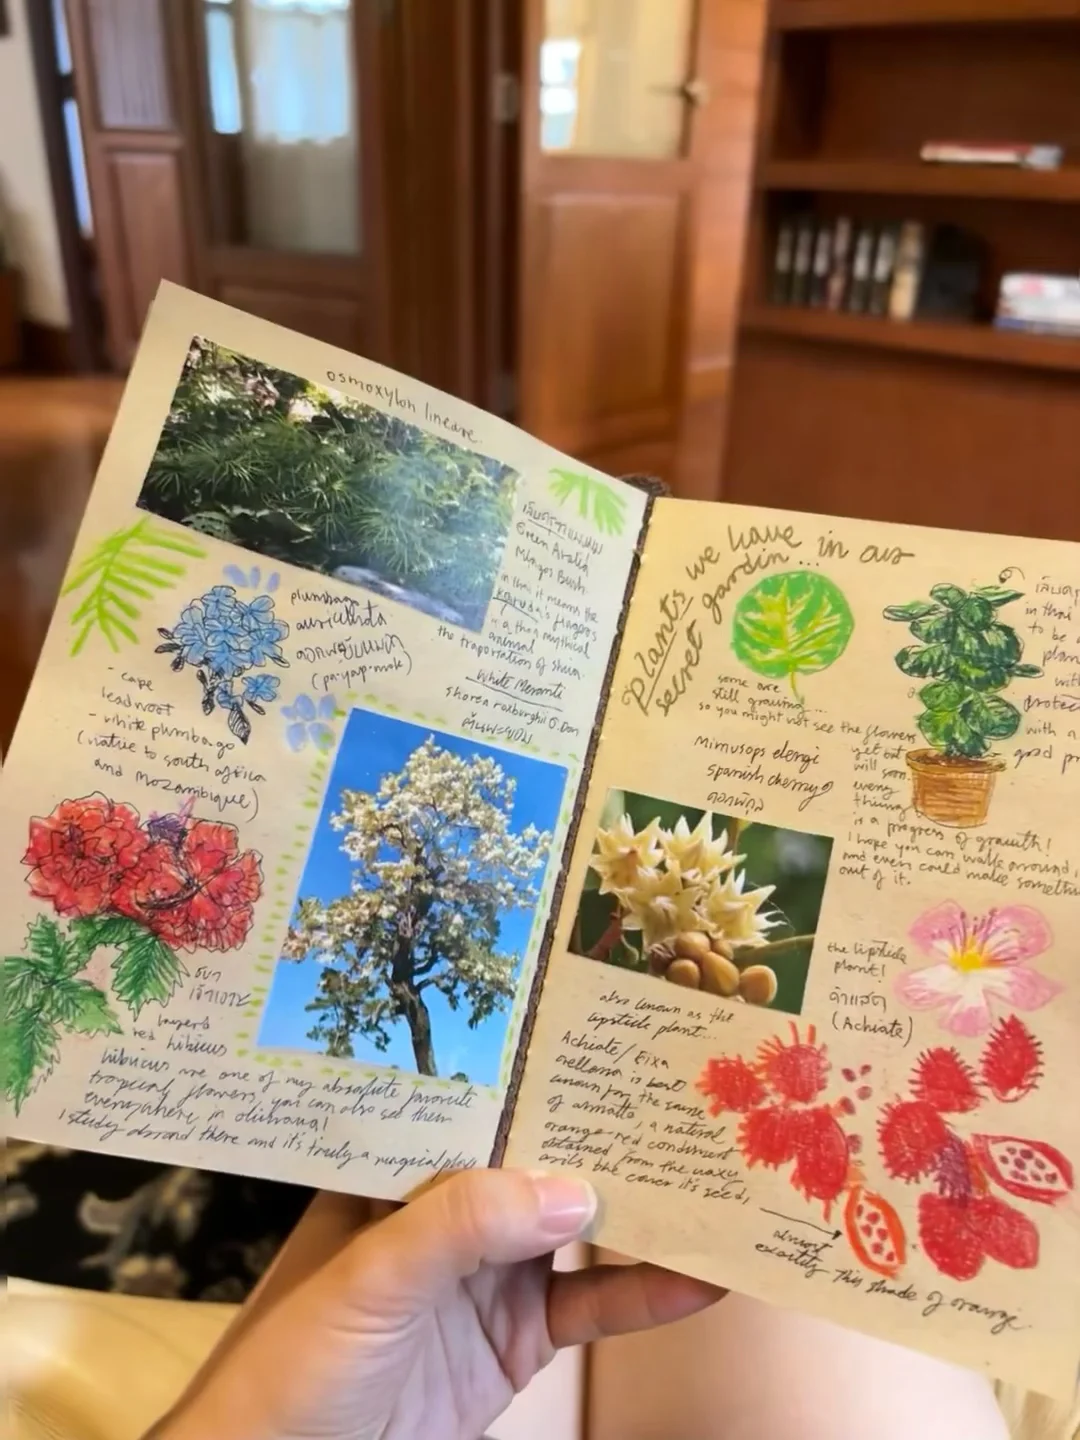 osmoxylon lineare
Green Aralia
Mingos Bush
in thai it means the
karuda's fingers
a thai mythical
animal
the traportation of shiva.
plumbago
auriculata
(pa-yap-mok)
- cape
leadwort
- white plumbago
(native to south africa
and Mozambique)
White Meranti
shorea roxburghii G. Don
ต้นพะยอม
ชบา
layers
red hibicus
hibicus are one of my absolute favorite
tropical flowers, you can also see them
everywhere in
I study abroad there and it's truly a magical place
Plants we have in our
secret gardin...
some are
still growing...
so you might not see the flowers
yet but
will soon.
every
thiung
is a progress of growth!
I hope you can walk arround,
and even could make somethi
out of it.
in thai
to be a
plan
with
protec
with a
good pr
mimusops elengi
spanish cherry
ดอกพิกุล
the lipstick
plant!
คำแสด
(Achiate)
also known as the
lipstick plant...
Achiate/Bixa
orellana is best
known for the same
of annatto, a natural
orange-red condiment
obtained from the waxy
arils the cover it's seed,
almost
exactly this shade of orange.